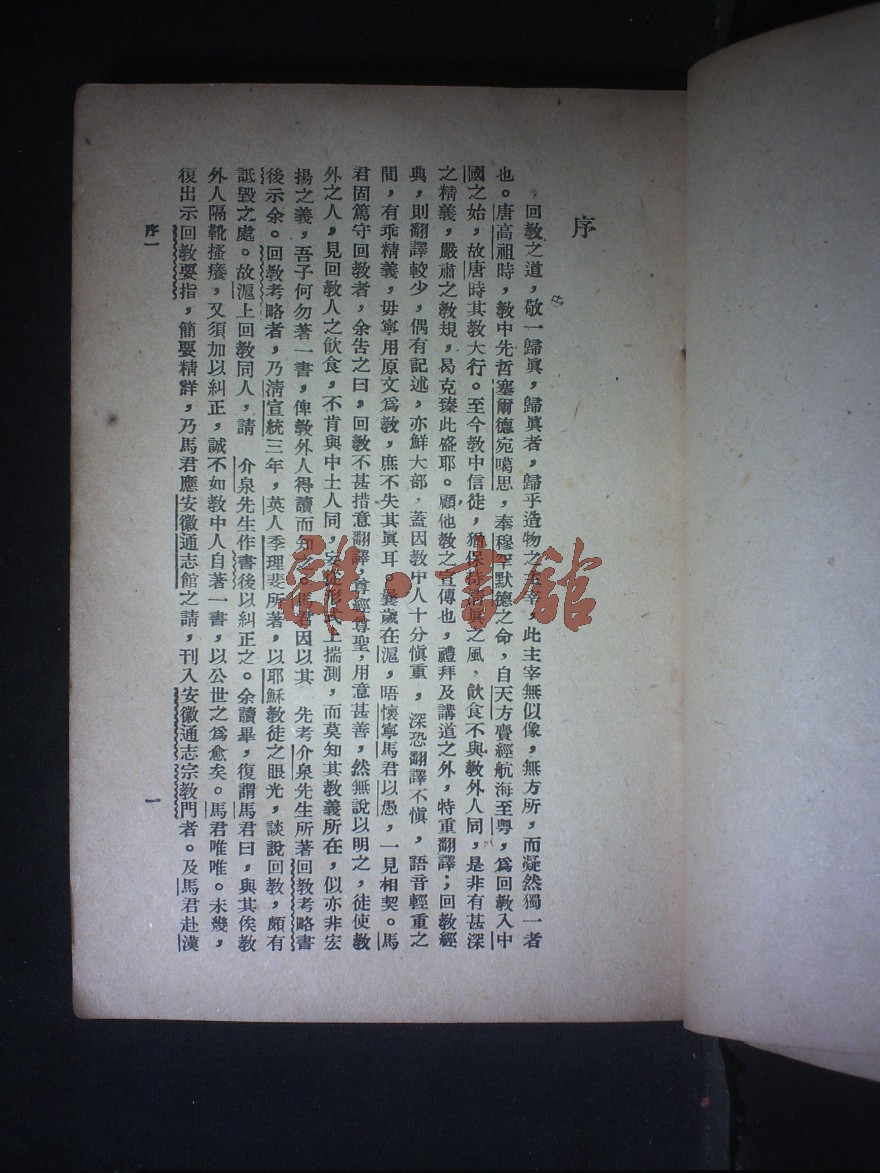 序
回教之道，敬一歸眞，歸眞者，歸乎造物之主宰，此主宰無似像，無方所，而凝然獨一者
也。唐高祖時，教中先哲塞爾德宛噶思，奉穆罕默德之命，自天方賷經航海至粵，爲回教入中
國之始，故唐時其教大行。至今教中信徒，猶保持眞之風，飲食不與教外人同，是非有甚深
之精義，嚴肅之教規，曷克臻此盛耶。顧他教之宣傳也，禮拜及講道之外，特重翻譯；回教經
典，則翻譯較少，偶有記述，亦鮮大部，蓋因教中人十分愼重，深恐翻譯不愼，語音輕重之
間，有乖精義，毋寧用原文爲教，庶不失其眞耳。曩歲在滬，晤懷寧馬君以愚，一見相契。馬
君固篤守回教者，余告之曰，回教不甚措意翻譯，尊經尊聖，用意甚善，然無說以明之，徒使教
外之人，見回教人之飲食，不肯與中土人同，妄從形式上揣測，而莫知其教義所在，似亦非宏
揚之義，吾子何勿著一書，俾教外人得讀而知之。馬君因以其　先考介泉先生所著回教考略書
後示余。回教考略者，乃淸宣統三年，英人季理裴所著，以耶穌教徒之眼光，談說回教，頗有
詆毀之處。故滬上回教同人，請　介泉先生作書後以糾正之。余讀畢，復謂馬君曰，與其俟教
外人隔靴搔癢，又須加以糾正，誠不如教中人自著一書，以公世之爲愈矣。馬君唯唯。未幾，
復出示回教要指，簡要精詳，乃馬君應安徽通志館之請，刊入安徽通志宗教門者。及馬君赴漢
序一
一
雜·書館